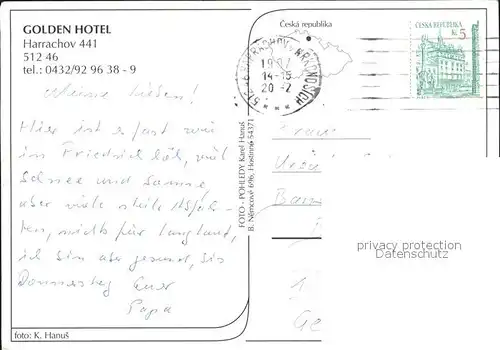 GOLDEN HOTEL
Harrachov 441
512 46
tel.: 0432/92 96 38 - 9
Meine Lieben!
Hier ist es fast wie
im Friedrich, viel
Schnee und Sonne,
aber viele steile Abfahr-
ten, nichts für Langlauf,
ich bin aber gesund, bis
Donnerstag Euer
Papa
foto: K. Hanuš
FOTO - POHLEDY Karel Hanuš
B. Němcové 696, Hostinné 54371
Česká republika
HARRACHOV V KRKONOŠÍCH
14-15
20 -2
ČESKÁ REPUBLIKA
Kč 5
privacy protection
Datenschutz